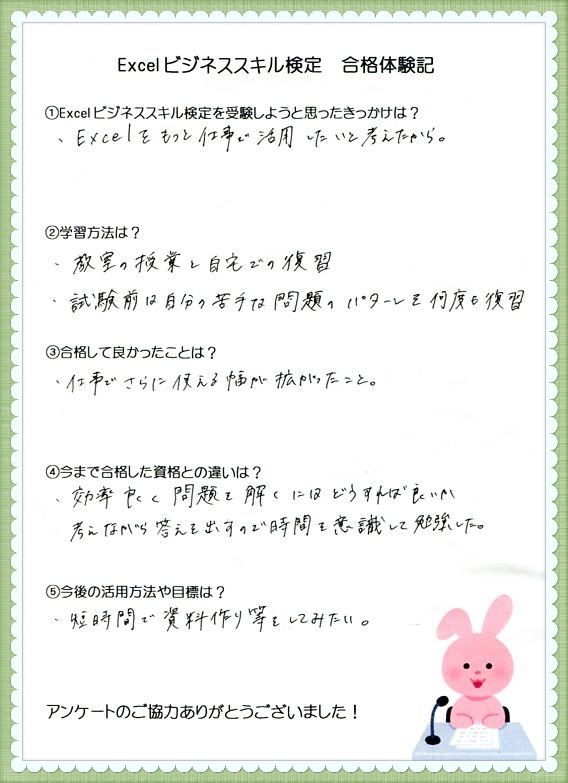 Excelビジネススキル検定　合格体験記
①Excelビジネススキル検定を受験しようと思ったきっかけは？
・Excelをもっと仕事で活用したいと考えたから。
②学習方法は？
・教室の授業と自宅での復習
・試験前は自分の苦手な問題のパターンを何度も復習
③合格して良かったことは？
・仕事でさらに使える幅が拡がったこと。
④今まで合格した資格との違いは？
・効率良く問題を解くにはどうすれば良いか
考えながら答えを出すので時間を意識して勉強した。
⑤今後の活用方法や目標は？
・短時間で資料作り等をしてみたい。
アンケートのご協力ありがとうございました！